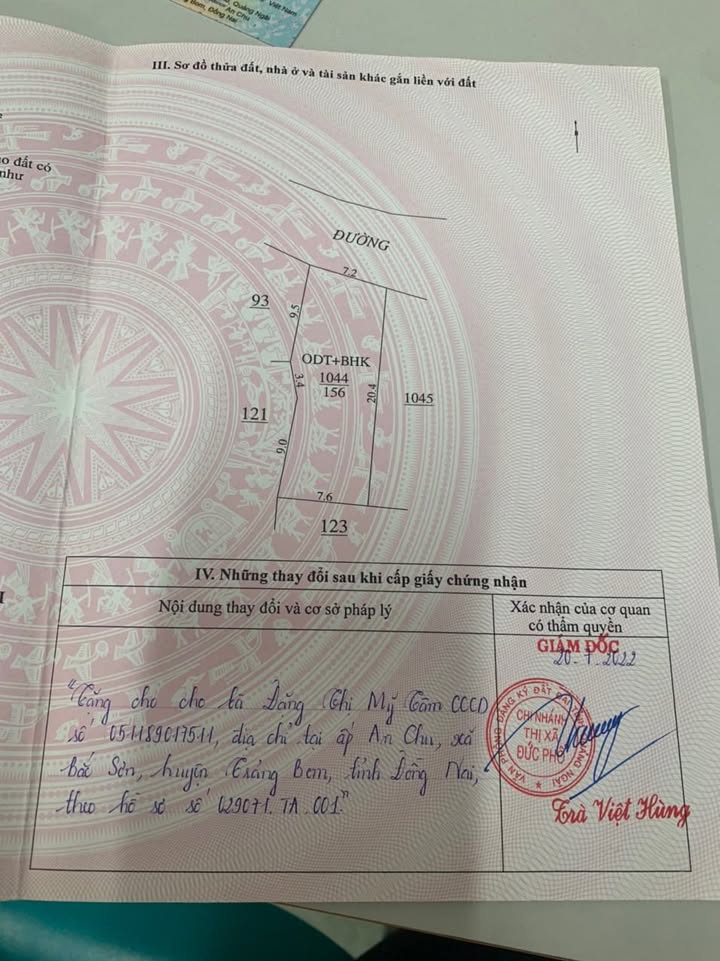 Việt Nam
Quảng Ngãi
An Chu
Bom, Đồng Nai
III. Sơ đồ thửa đất, nhà ở và tài sản khác gắn liền với đất
đất có
như
ĐƯỜNG
7.2
93
9.5
ODT+BHK
3.4
1044
156
20.4
1045
121
9.0
7.6
123
IV. Những thay đổi sau khi cấp giấy chứng nhận
Nội dung thay đổi và cơ sở pháp lý
Xác nhận của cơ quan
có thẩm quyền
GIÁM ĐỐC
20.7.2022
"Tặng cho cho bà Đặng Thị Mỹ Tâm CCCD
số 051189017511, địa chỉ tại ấp An Chu, xã
Bắc Sơn, huyện Trảng Bom, tỉnh Đồng Nai,
theo hồ sơ số 029071.TA.001."
VĂN PHÒNG ĐĂNG KÝ ĐẤT ĐAI QUẢNG NGÃI
CHI NHÁNH
THỊ XÃ
ĐỨC PHỔ
Trà Việt Hùng